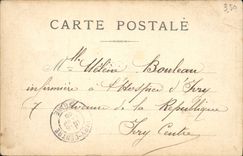 3,50
CARTE POSTALE
Mlle Hélène Bouleau
infirmière à l'Hospice d'Ivry
7 Avenue de la République
Ivry Centre